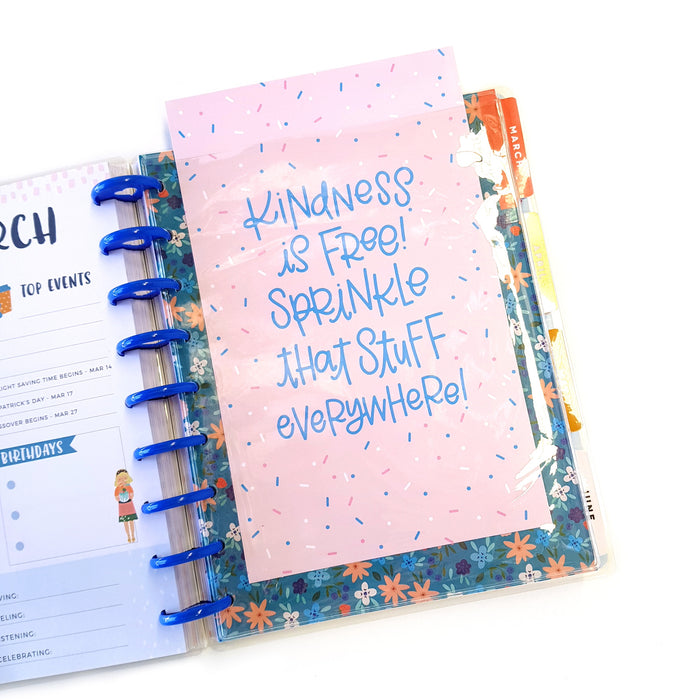 RCH
TOP EVENTS
IGHT SAVING TIME BEGINS - MAR 14
PATRICK'S DAY - MAR 17
SSOVER BEGINS - MAR 27
BIRTHDAYS
VING:
ELING:
STENING:
CELEBRATING:
KINDNESS
is FREE!
SPRINKLE
tHAt StuFF
eveRYWHeRe!
MARCH
JUNE